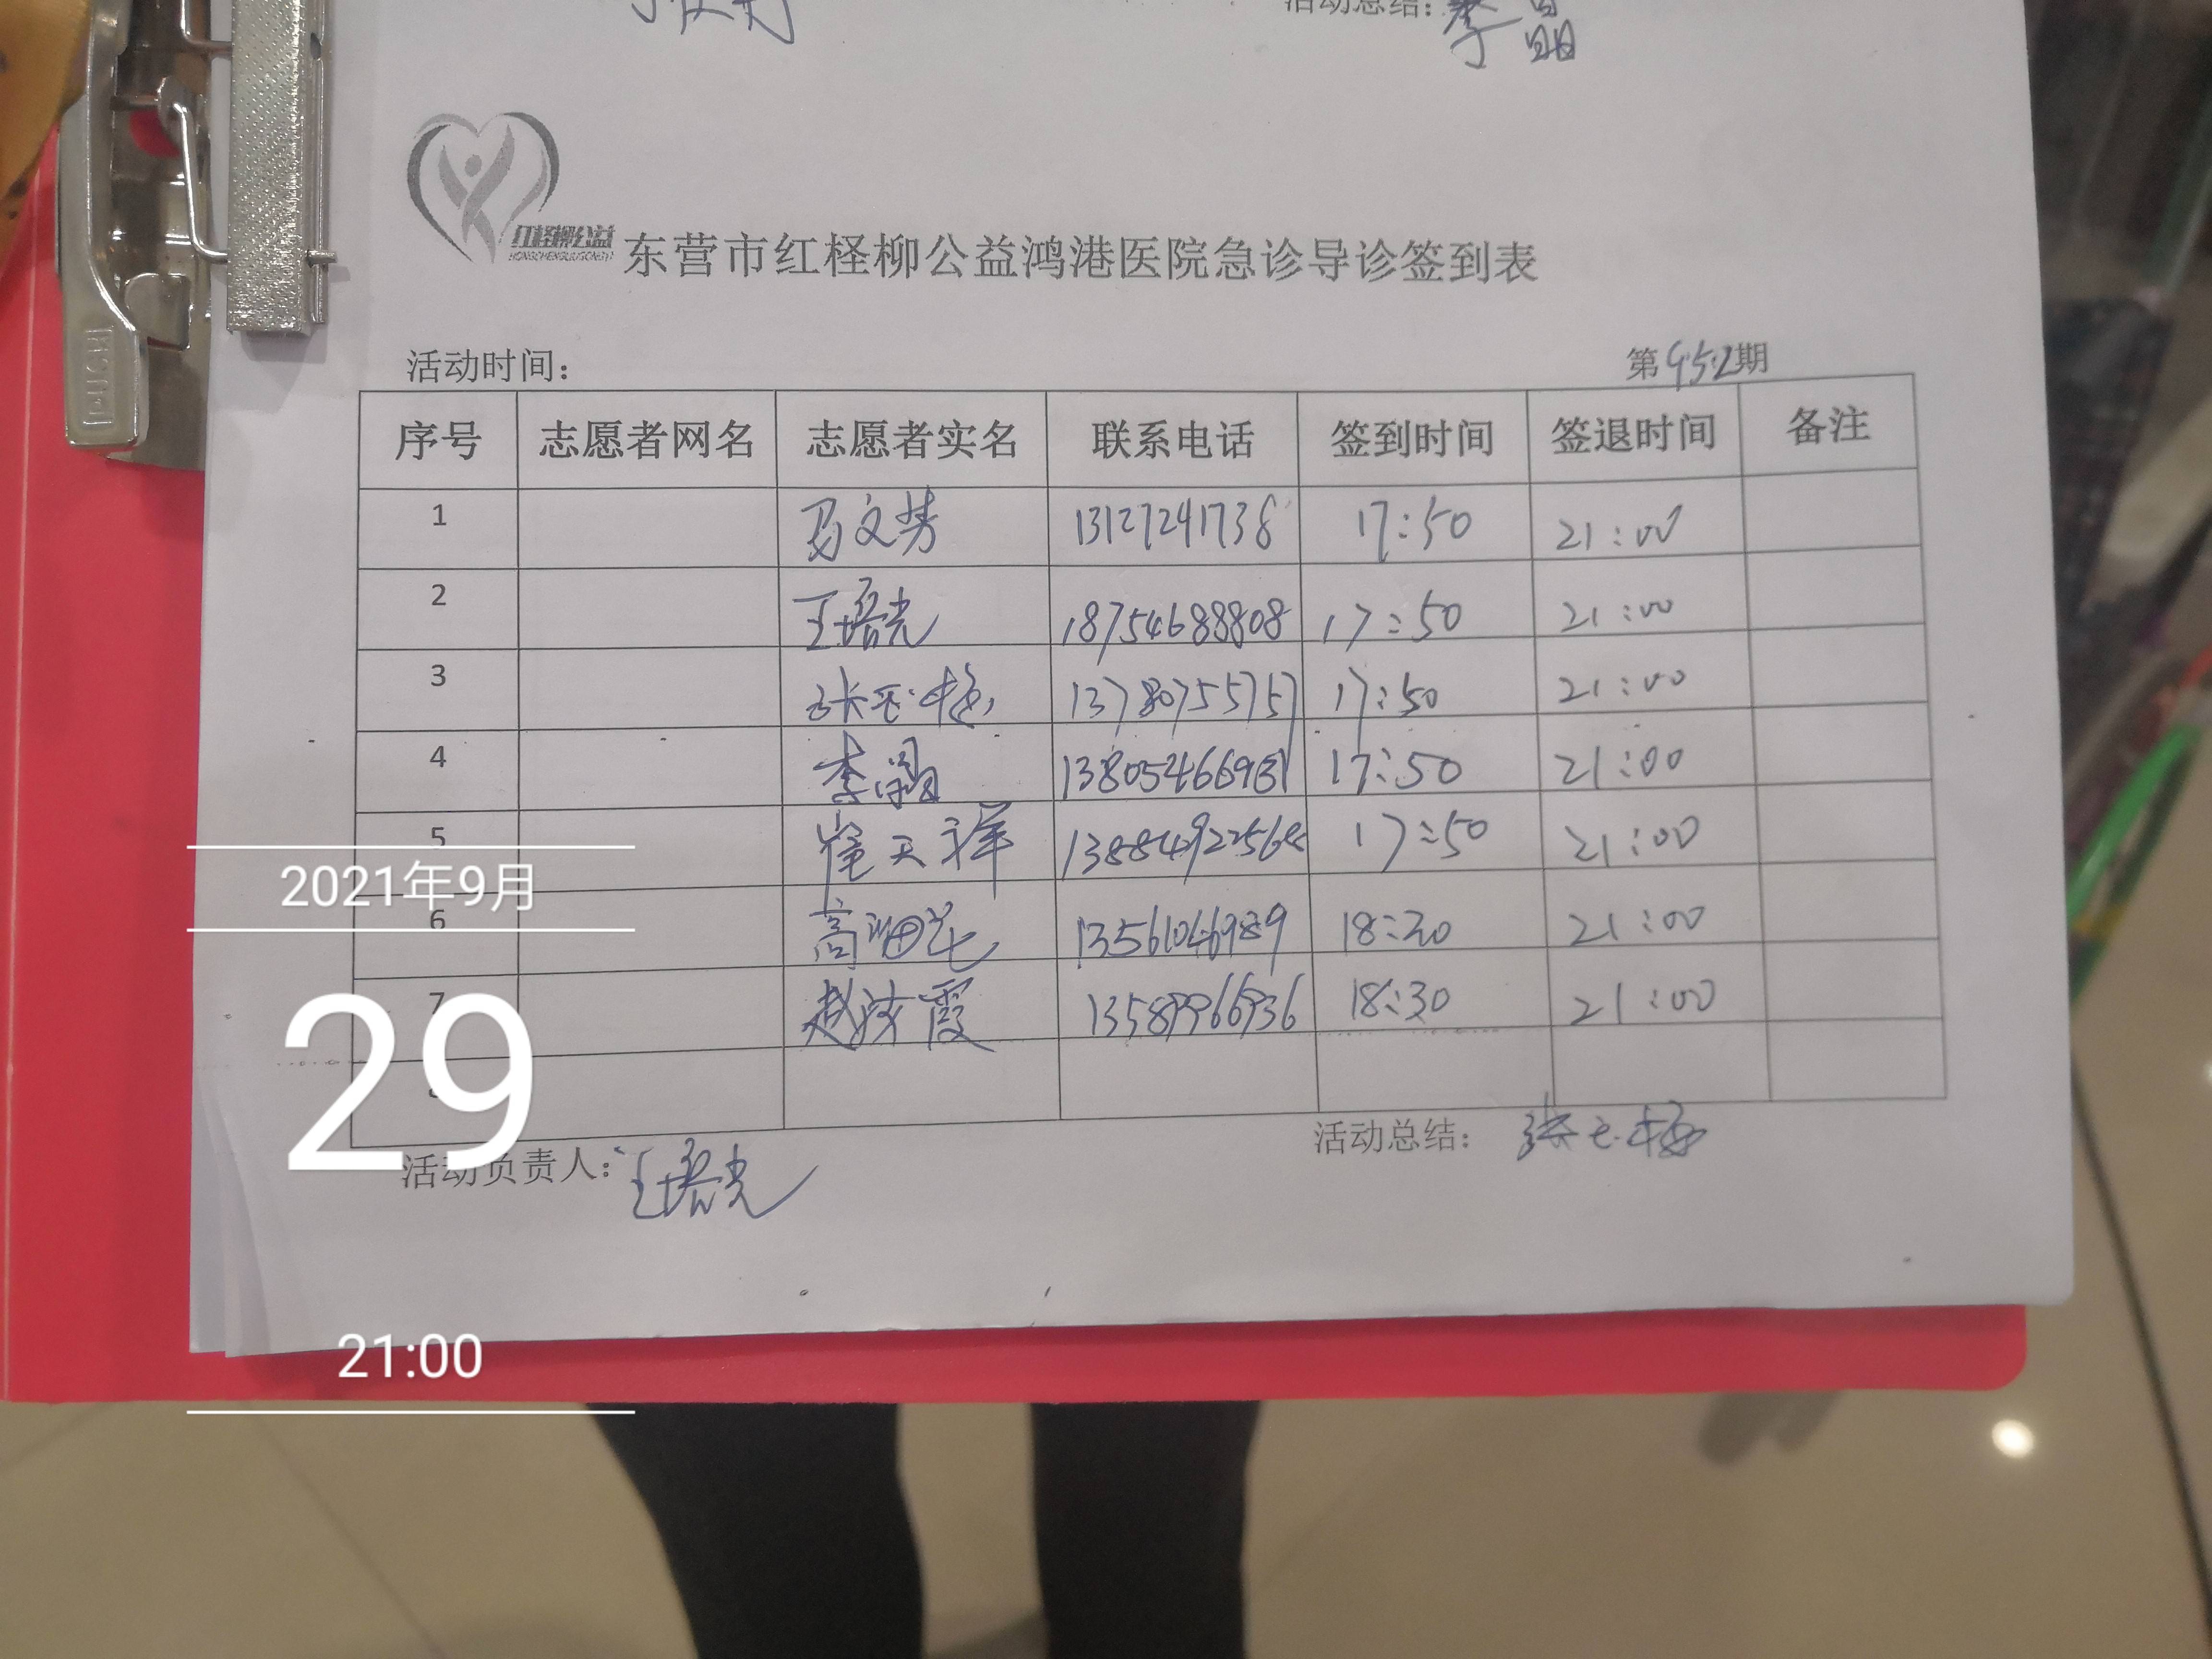 活动总结：李晶
红柽柳公益
HONGCHENGLIUGONGYI
东营市红柽柳公益鸿港医院急诊导诊签到表
活动时间： 第952期
序号 志愿者网名 志愿者实名 联系电话 签到时间 签退时间 备注
1 13127241738 17:50 21:00
2 王培光 18754688808 17:50 21:00
3 13780755757 17:50 21:00
4 李晶 17:50 21:00
5 崔天祥 13884922568 17:50 21:00
6 13561046989 21:00
7 赵海霞 13589966936 18:30 21:00
活动负责人：王培光 活动总结：
2021年9月
29
21:00